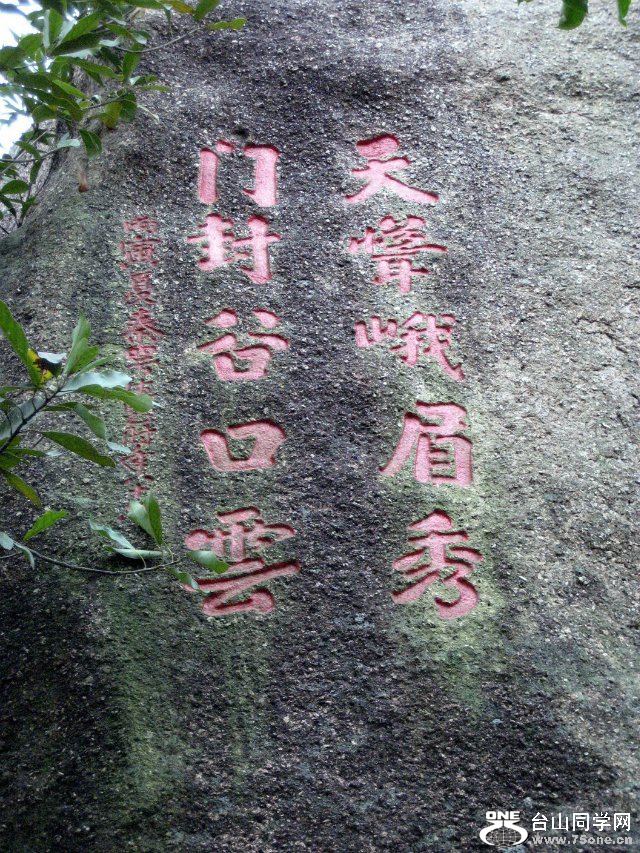 天聳峨眉秀
门封谷口雲
ONE 台山同学网
www.75one.cn